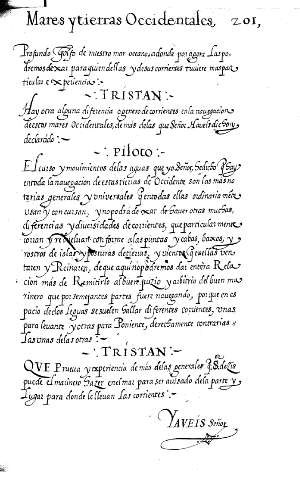 Mares y tierras Occidentales, 201,
Profundo Golfo de nuestro mar oceano, adonde por agora las po
dremos dexar para quien dellas y de sus corrientes tuviere mas par
ticular experiencia
TRISTAN
Hay otra alguna diferencia o genero de corrientes en la navegacion
de estos mares Occidentales, de mas de las que Señor haveis
declarado
PILOTO
El curso y movimientos de las aguas que yo Señor he dicho q̃ hay
en toda la navegacion de estas tierras de Occidente son las mas no
torias generales y universales q̃ en todas ellas ordinariamẽte
usan y con cursan, y no podra dexar de haver otras muchas,
diferencias y diversidades de corrientes, que particularmente
corran y conforme a las puntas y cabos, baxos, y
rostros de islas y posturas de tierras, y vientos q̃ en ellas ven
tasen y Reinaren, de que aqui no podremos dar entera Rela
cion mas de Remitirlo al buen juizio y arbitrio del buen ma
rinero que por semejantes partes fuere navegando, porque en es
pacio de dos leguas se suelen hallar diferentes corrientes, unas
para levante y otras para Poniente, derechamente contrarias
las unas de las otras
TRISTAN
QUE Prueva y experiencia de mas de las generales
puede el marinero hazer en el mar para ser avisado de la parte y
lugar para donde le llevan las corrientes
YAVEIS Señor